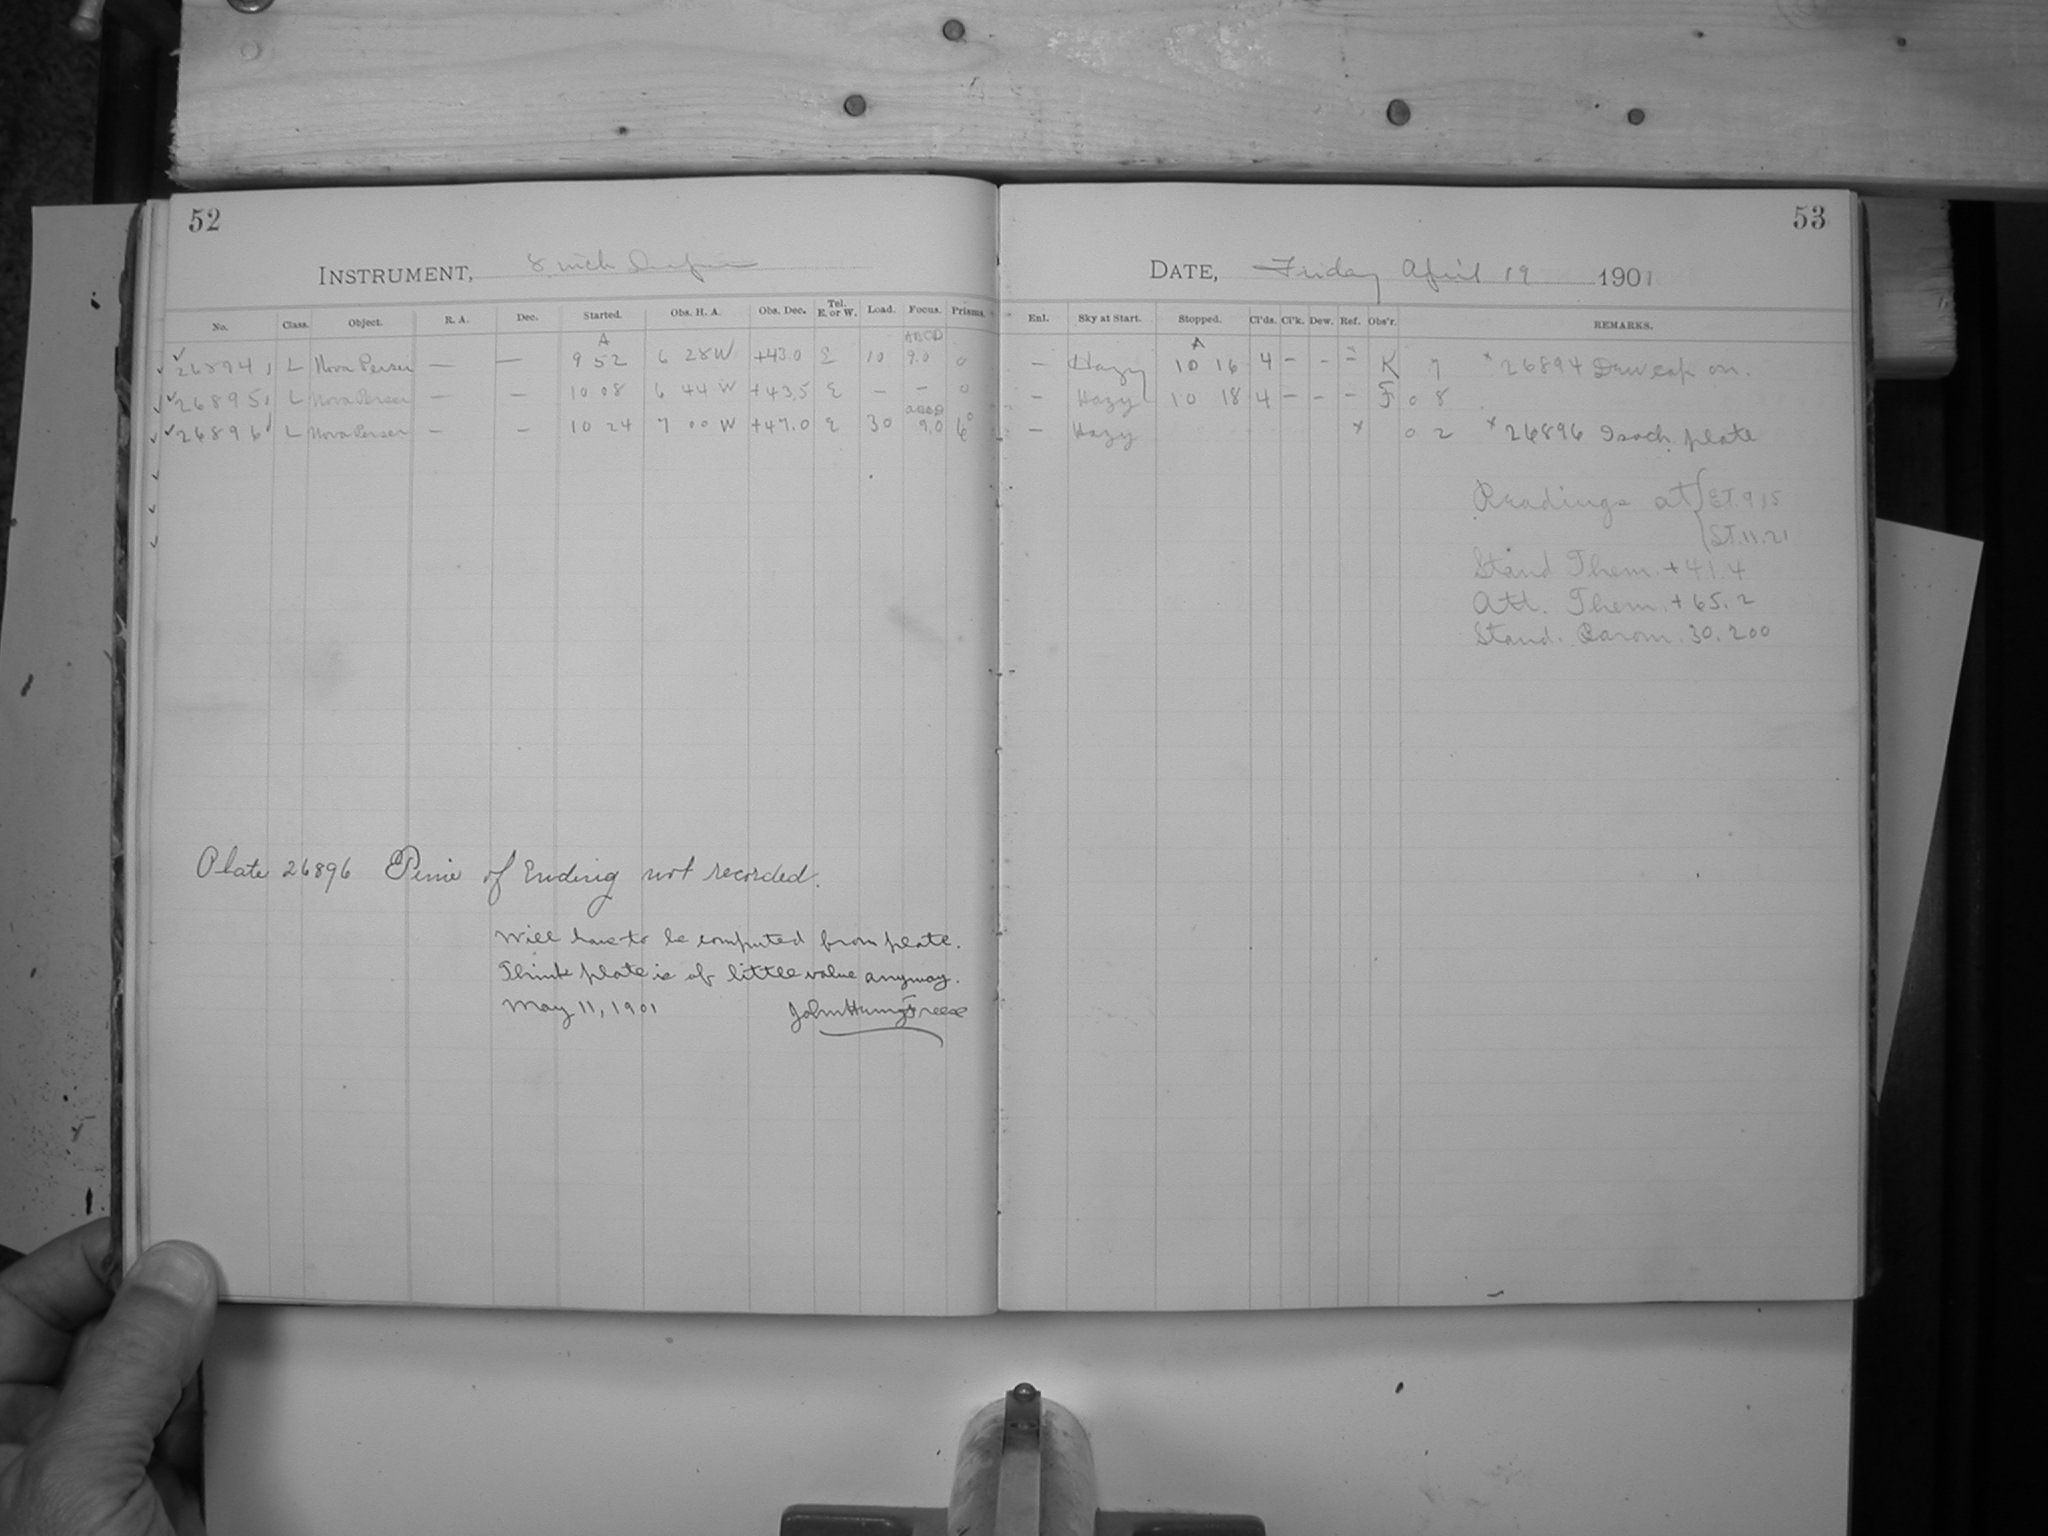 52
INSTRUMENT, 8 inch Draper
No. Class. Object. R. A. Dec. Started. Obs. H. A. Obs. Dec. Tel. E. or W. Load. Focus. Prisms.
A ABCD
✓26894, L Nova Persei — — 9 52 6 28W +43.0 E 10 9.0 0
✓26895, L Nova Persei — — 10 08 6 44 W +43.5 E — — 0
✓26896 L Nova Persei — — 10 24 7 00 W +47.0 E 30 9.0
Plate 26896 Time of Ending not recorded.
Will have to be computed from plate.
Think plate is of little value anyway.
May 11, 1901 John Hung Freese
53
DATE, Friday April 19 1901
Enl. Sky at Start. Stopped. Cl'ds. Cl'k. Dew. Ref. Obs'r. REMARKS.
A
— Hazy 10 16 4 – – K 7 x 26894 Dew cap on.
— Hazy 10 18 4 – – – F 0 8
— Hazy x 0 2 x 26896 Isoch. plate
Readings at ET. 9.15
ST. 11.21
Stand Them. +41.4
Att. Them. +65.2
Stand. Barom. 30.200